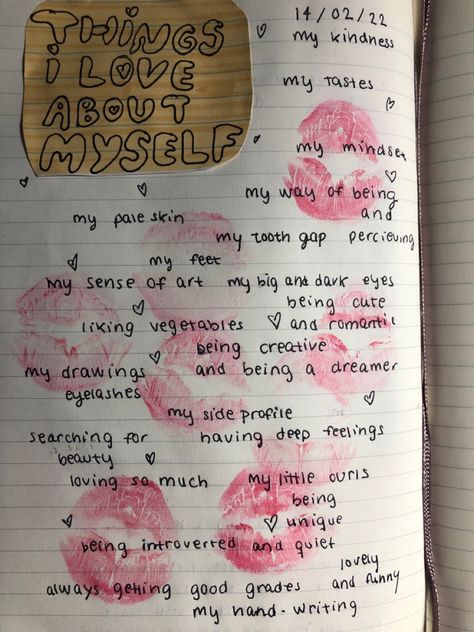 THiNGS
i LOVE
ABOUT
MYSELF
14/02/22
my kindness
my tastes
my mindset
my way of being
and
my pale skin
my tooth gap percieving
my feet
my sense of art my big and dark eyes
being cute
liking vegetables and romantic
being creative
my drawings and being a dreamer
eyelashes
my side profile
searching for having deep feelings
beauty
loving so much my little curls
being
unique
being introverted and quiet
lovely
always getting good grades and funny
my hand-writing